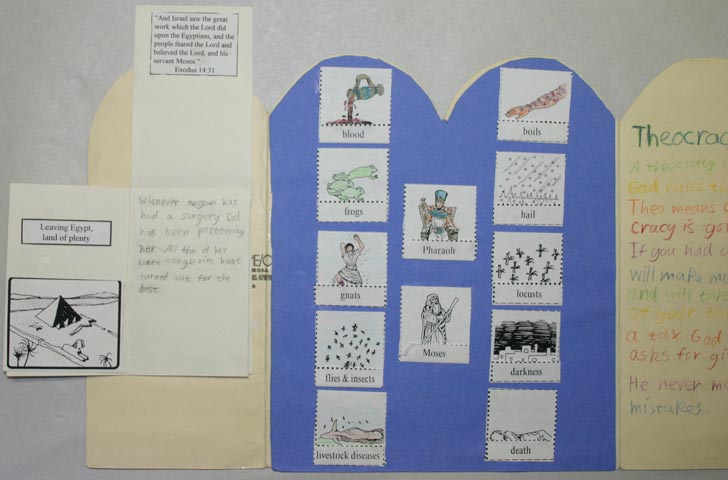 "And Israel saw the great
work which the Lord did
upon the Egyptians, and the
people feared the Lord and
believed the Lord, and his
servant Moses."
Exodus 14:31
Leaving Egypt,
land of plenty
Whenever has
had a surgery God
has been protecting
her. All five of her
heart surgeries have
turned out for the
best.
blood
frogs
gnats
flies & insects
livestock diseases
Pharaoh
Moses
boils
hail
locusts
darkness
death
Theocrac
A theocracy i
God rules th
Theo means G
cracy is go
If you had a
will make mi
and will ta
of your th
a tax. God
asks for gi
He never m
mistakes.